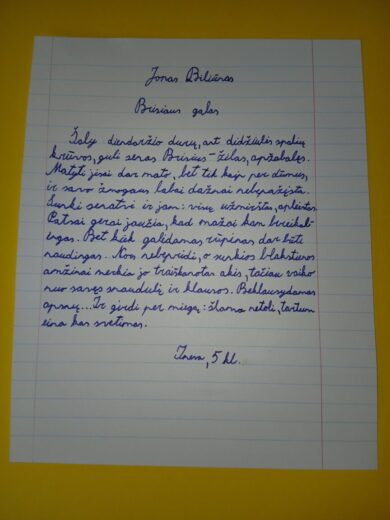 Jonas Biliūnas
Brisiaus galas
Šaly diendaržio durų, ant didžiulės spalių
krūvos, guli senas Brisius - žilas, apžabalęs.
Matyti jisai dar mato, bet tik kaip per dūmus,
ir savo žmogaus labai dažnai nebepažįsta.
Sunki senatvė ir jam: visų užmirštas, apleistas.
Patsai gerai jaučia, kad mažai kam bereikal-
ingas. Bet kiek galėdamas rūpinas dar būti
naudingas. Nors nebeprideda, o sunkios blakstienos
amžinai merkia jo traiškanotas akis, tačiau vaiko
nuo savęs snaudulį ir klauso. Beklausydamas
apsnų... Ir girdi per miegą: šlama netoli, tartum
eina kas svetimas.
Ineva, 5 kl.